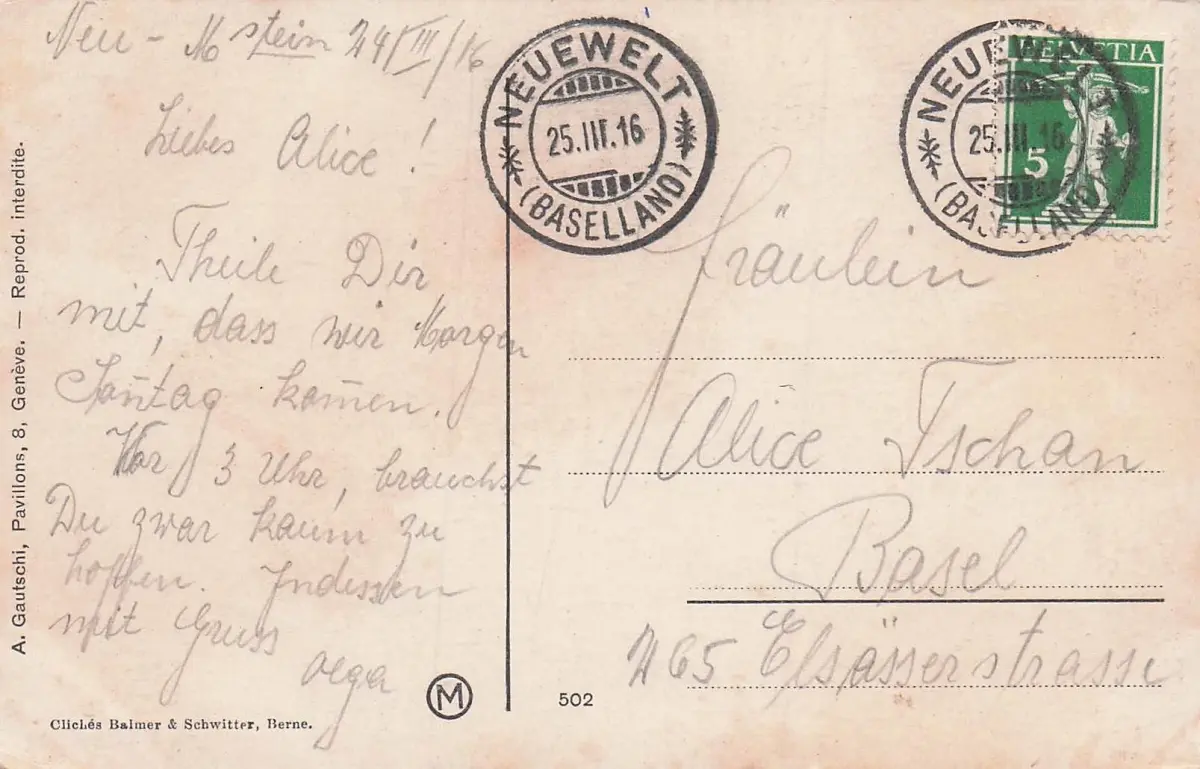 Neu-Mstein 24/III/16
Liebes Alice!
Theile Dir
mit, dass wir Morgen
Son̄tag kom̄en.
Vor 3 Uhr, brauchst
Du zwar kaum zu
hoffen. Indessen
mit Gruss
Olga
A. Gautschi, Pavillons, 8, Genève. — Reprod. interdite.
Clichés Balmer & Schwitter, Berne.
M
502
NEUEWELT
25.III.16
(BASELLAND)
NEUEWELT
25.III.16
(BASELLAND)
HELVETIA
5
Fräulein
Alice Tschan
Basel
165 Elsässerstrasse